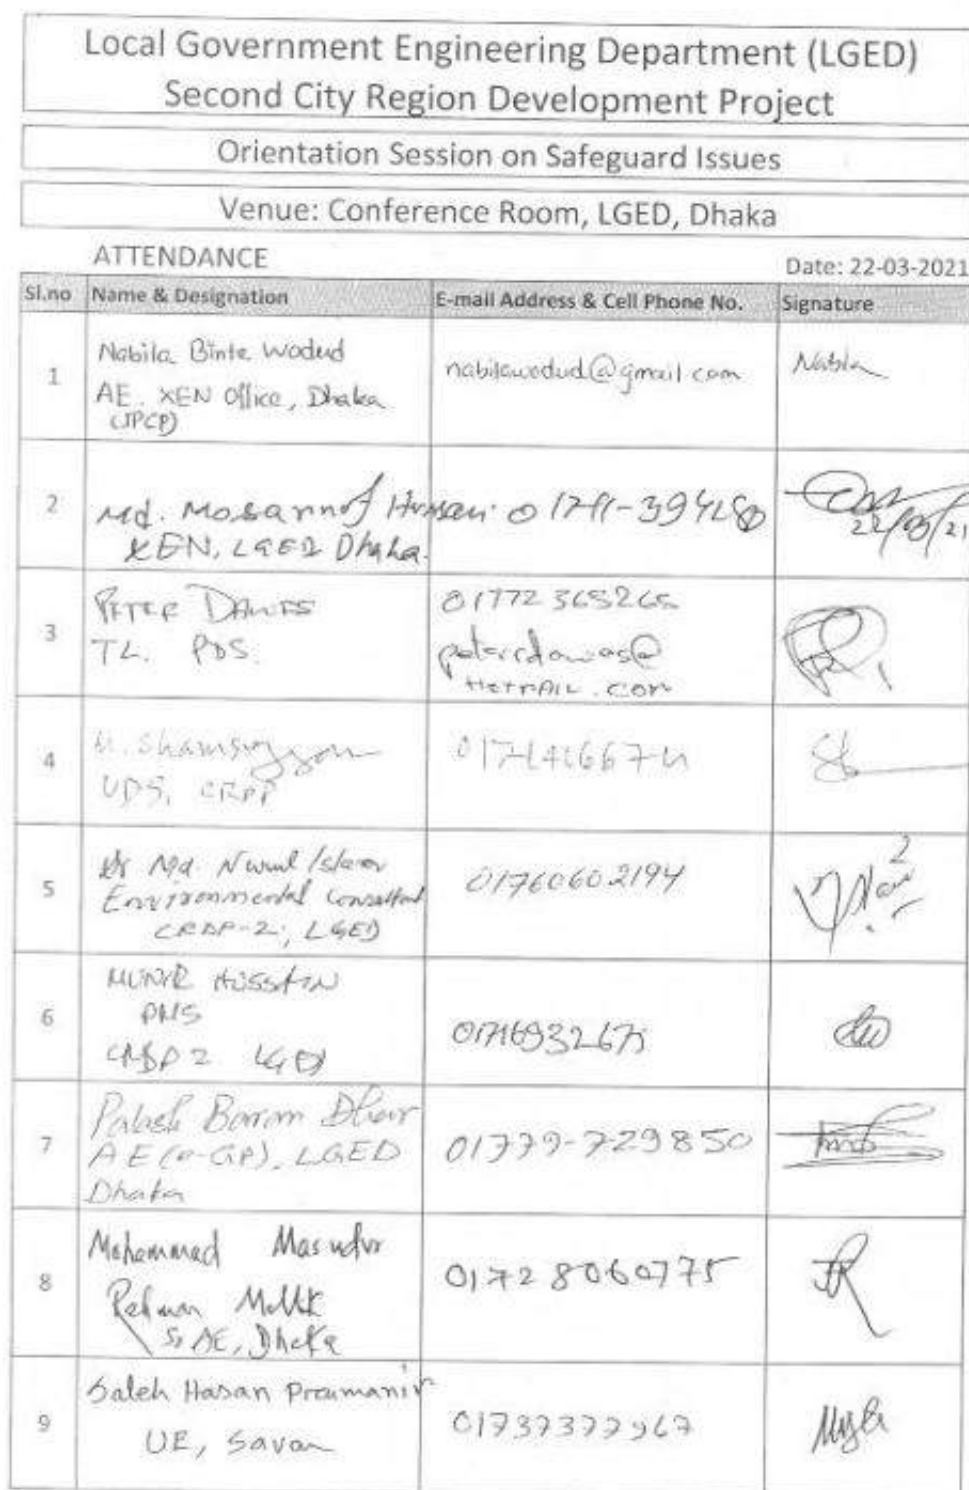 Local Government Engineering Department (LGED)
Second City Region Development Project
Orientation Session on Safeguard Issues
Venue: Conference Room, LGED, Dhaka
ATTENDANCE
Date: 22-03-2021
Sl.no Name & Designation E-mail Address & Cell Phone No. Signature
1
Nabila Binte Wadud
AE. XEN Office, Dhaka
nabilawadud@gmail.com
2
Md.
XEN, LGED Dhaka.
22/03/21
3
PETER DAWES
TL. PDS.
01772 365265
HOTMAIL.COM
4
UDS, CRDP
5
Dr Md. Nurul Islam
Environmental Consultant
CRDP-2, LGED
01760602194
6
MUNIR HUSSAIN
PMS
CRDP 2 LGED
7
Palash Baran Dhar
AE (e-GP), LGED
Dhaka
01779-729850
8
Mohammad Masudur
Rahman
Sr AE, Dhaka
01728060775
9
Saleh Hasan Pramanik
UE, Savar